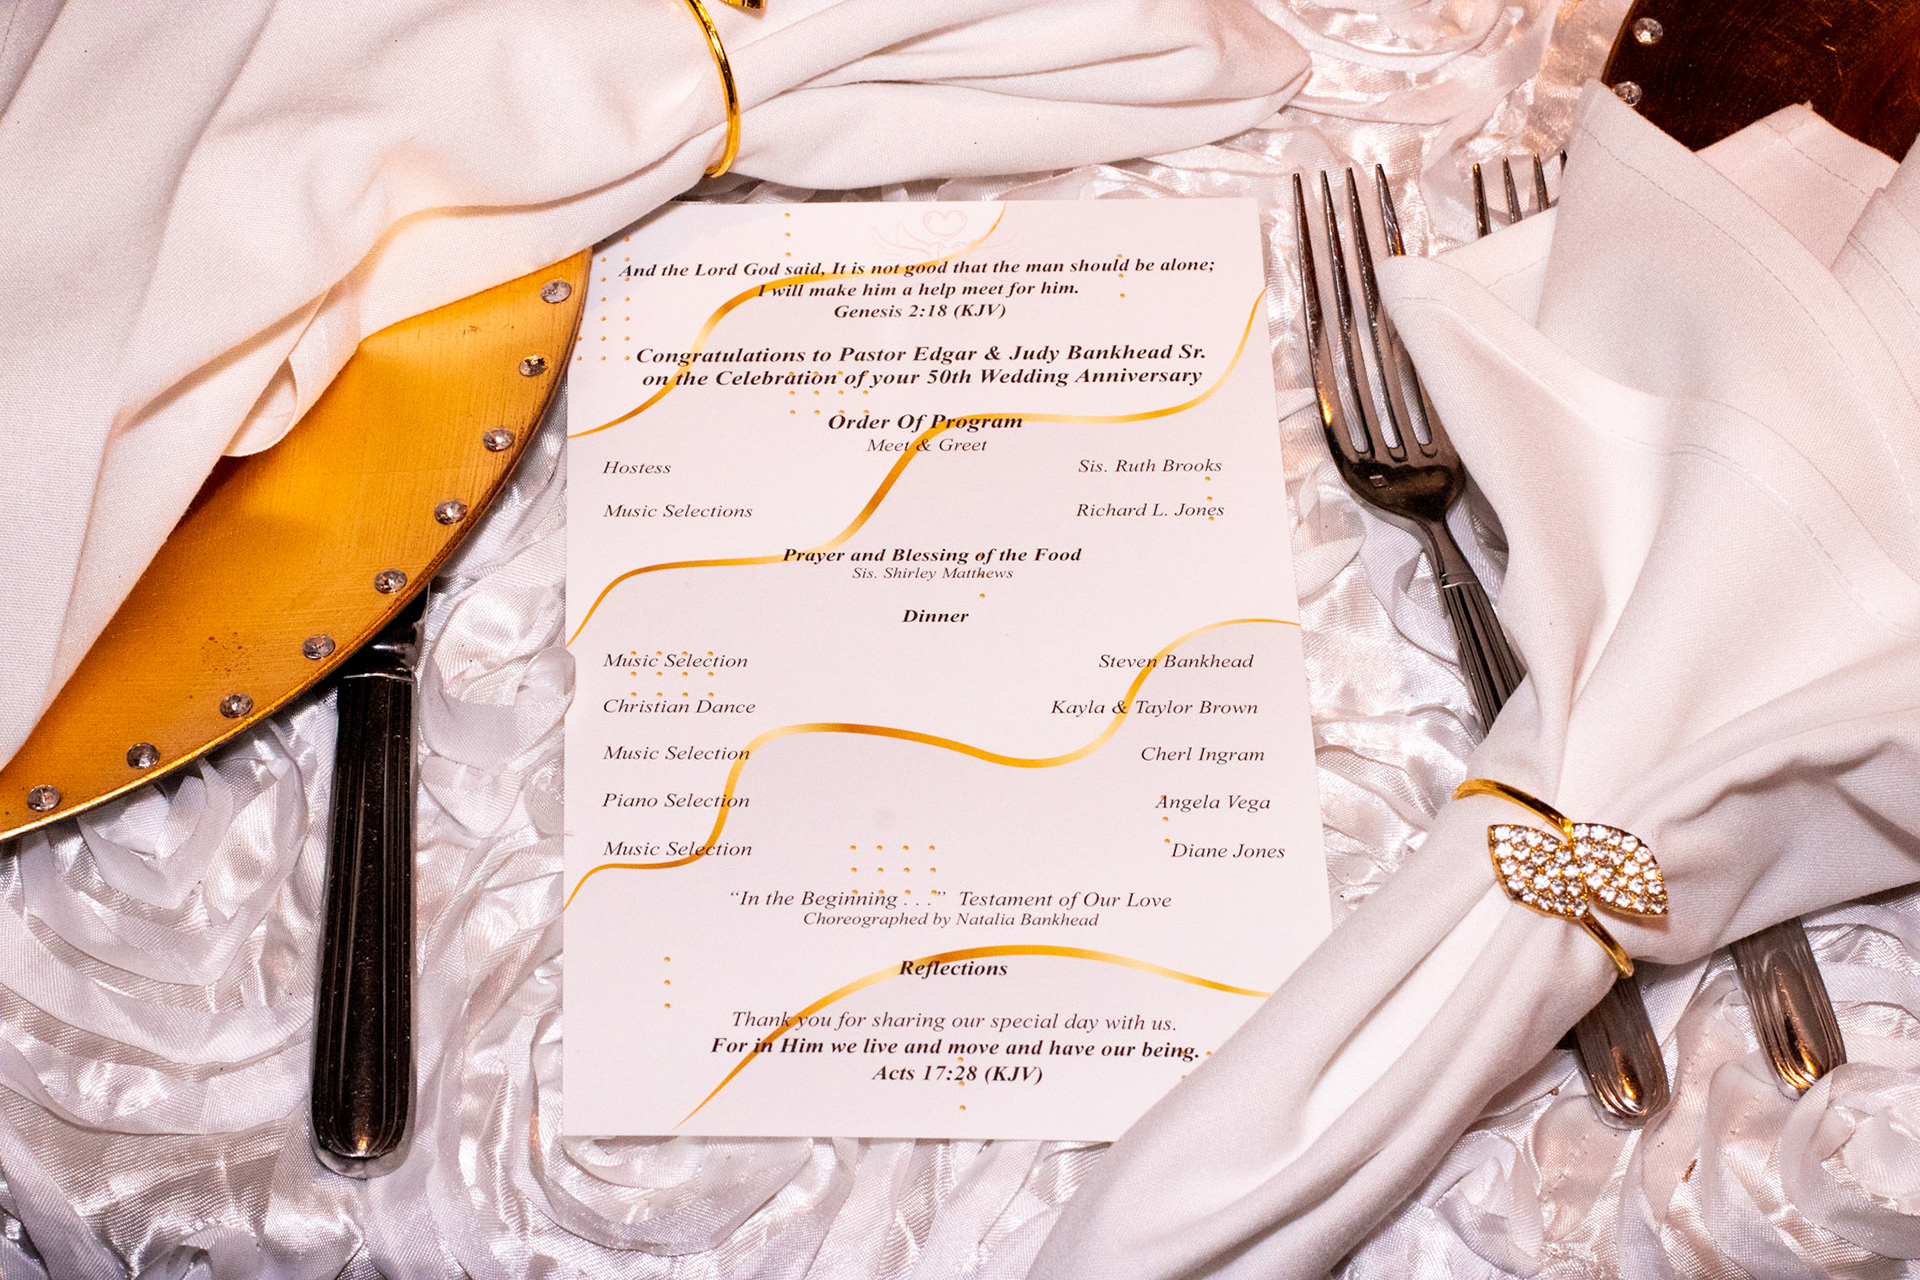 And the Lord God said, It is not good that the man should be alone;
I will make him a help meet for him.
Genesis 2:18 (KJV)
Congratulations to Pastor Edgar & Judy Bankhead Sr.
on the Celebration of your 50th Wedding Anniversary
Order Of Program
Meet & Greet
Hostess Sis. Ruth Brooks
Music Selections Richard L. Jones
Prayer and Blessing of the Food
Sis. Shirley Matthews
Dinner
Music Selection Steven Bankhead
Christian Dance Kayla & Taylor Brown
Music Selection Cherl Ingram
Piano Selection Angela Vega
Music Selection Diane Jones
“In the Beginning . . .” Testament of Our Love
Choreographed by Natalia Bankhead
Reflections
Thank you for sharing our special day with us.
For in Him we live and move and have our being.
Acts 17:28 (KJV)